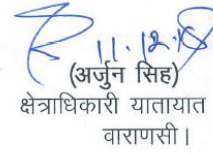 11.12.18
(अर्जुन सिंह)
क्षेत्राधिकारी यातायात
वाराणसी।